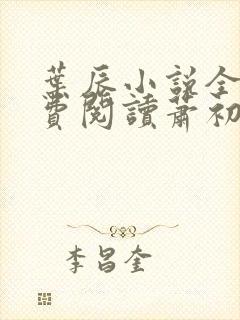 葉辰小説全
費閱讀蕭初
李昌奎